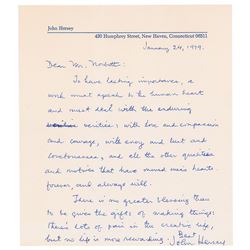 John Hersey
420 Humphrey Street, New Haven, Connecticut 06511
January 24, 1979.
Dear Mr.
To have lasting importance, a
work must speak to the human heart
and must deal with the enduring
verities: with love and compassion
and courage, with envy and lust and
and all the other qualities
and motives that have moved men's hearts
forever and always will.
There is no greater blessing than
to be given the gift of making things.
There's lots of pain in the creative life,
but no life is more rewarding. Best,
John Hersey